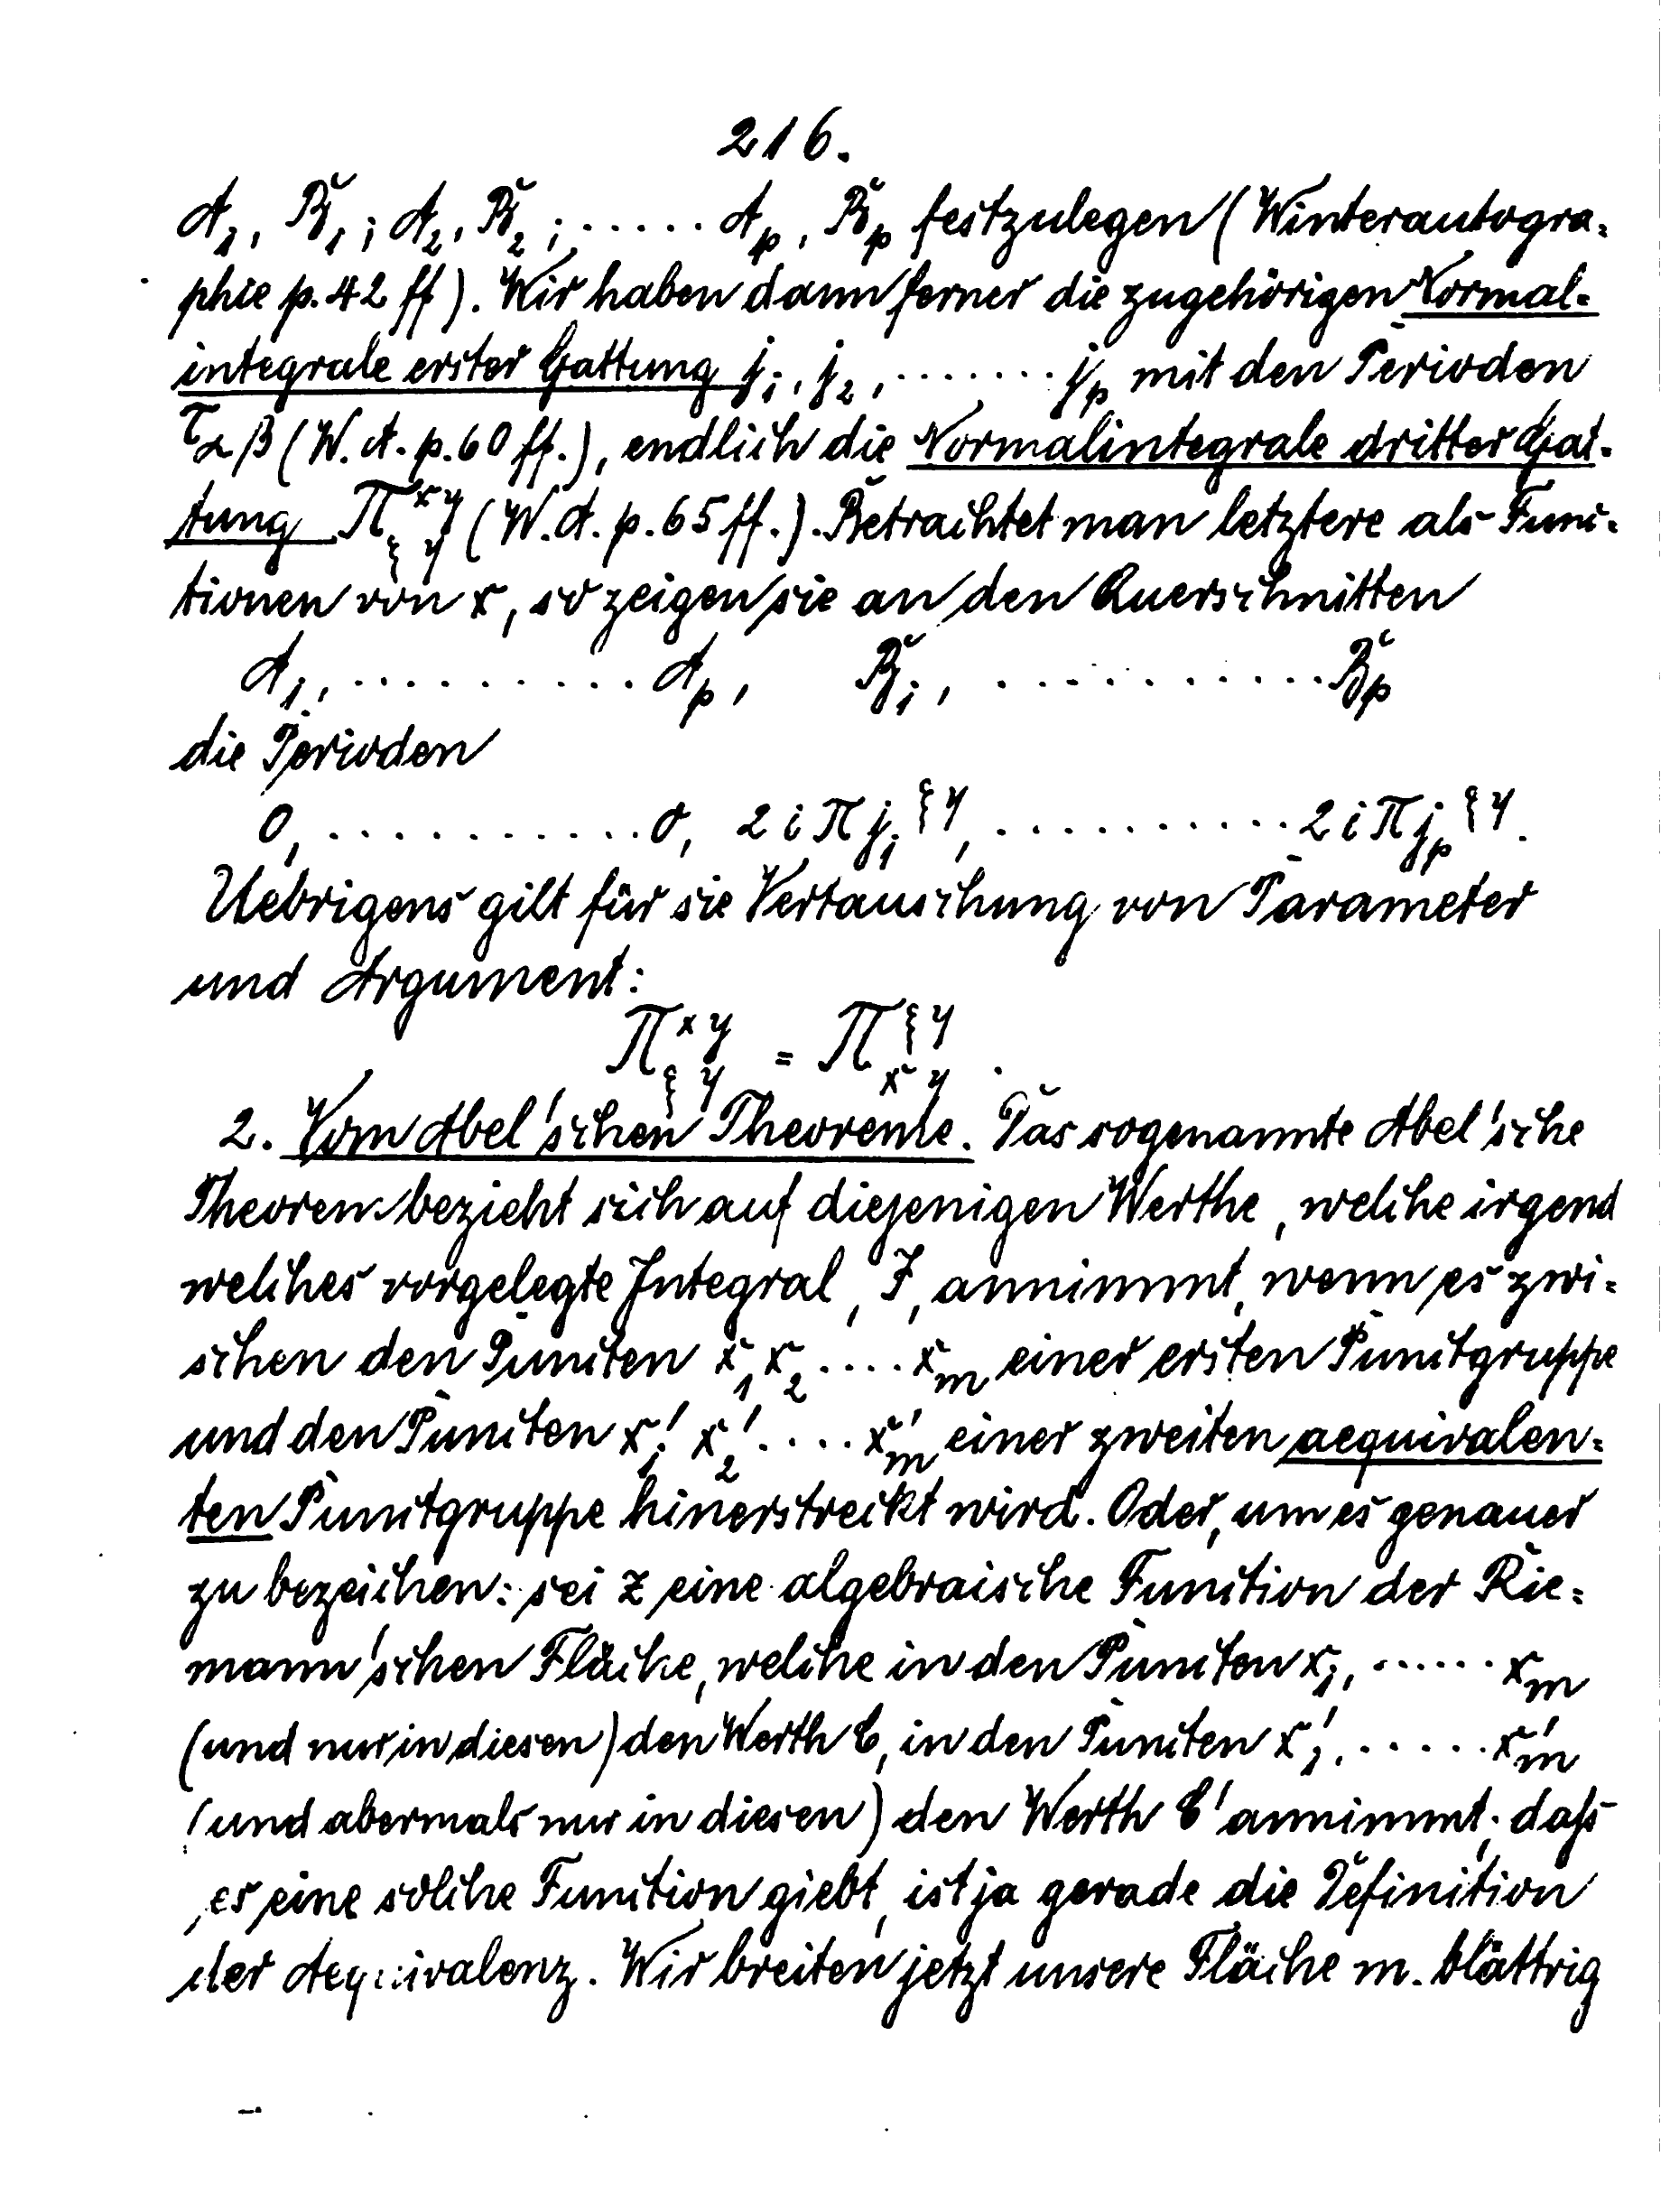 216.
A₁, B₁; A₂, B₂; ..... Aₚ, Bₚ festzulegen (Winterautogra-
phie p. 42 ff). Wir haben dann ferner die zugehörigen Normal-
integrale erster Gattung j₁, j₂, ....... jₚ mit den Perioden
τ_αβ (W. A. p. 60 ff.), endlich die Normalintegrale dritter Gat-
tung Π^{xy}_{ξη} (W. A. p. 65 ff.). Betrachtet man letztere als Func-
tionen von x, so zeigen sie an den Querschnitten
A₁, .......... Aₚ, B₁, ........... Bₚ
die Perioden
0, ........... 0, 2iπj₁^{ξη}, .......... 2iπjₚ^{ξη}.
Uebrigens gilt für sie Vertauschung von Parameter
und Argument:
Π^{xy}_{ξη} = Π^{ξη}_{xy}.
2. Vom Abel'schen Theoreme. Das sogenannte Abel'sche
Theorem bezieht sich auf diejenigen Werthe, welche irgend
welches vorgelegte Integral, J, annimmt, wenn es zwi-
schen den Puncten x₁ x₂ .... xₘ einer ersten Punctgruppe
und den Puncten x₁' x₂' .... xₘ' einer zweiten aequivalen-
ten Punctgruppe hinerstreckt wird. Oder, um es genauer
zu bezeichen: sei z eine algebraische Function der Rie-
mann'schen Fläche, welche in den Puncten x₁, ...... xₘ
(und nur in diesen) den Werth C, in den Puncten x₁', ..... xₘ'
(und abermals nur in diesen) den Werth C' annimmt; daß
es eine solche Function giebt, ist ja gerade die Definition
der Aequivalenz. Wir breiten jetzt unsere Fläche m. blättrig